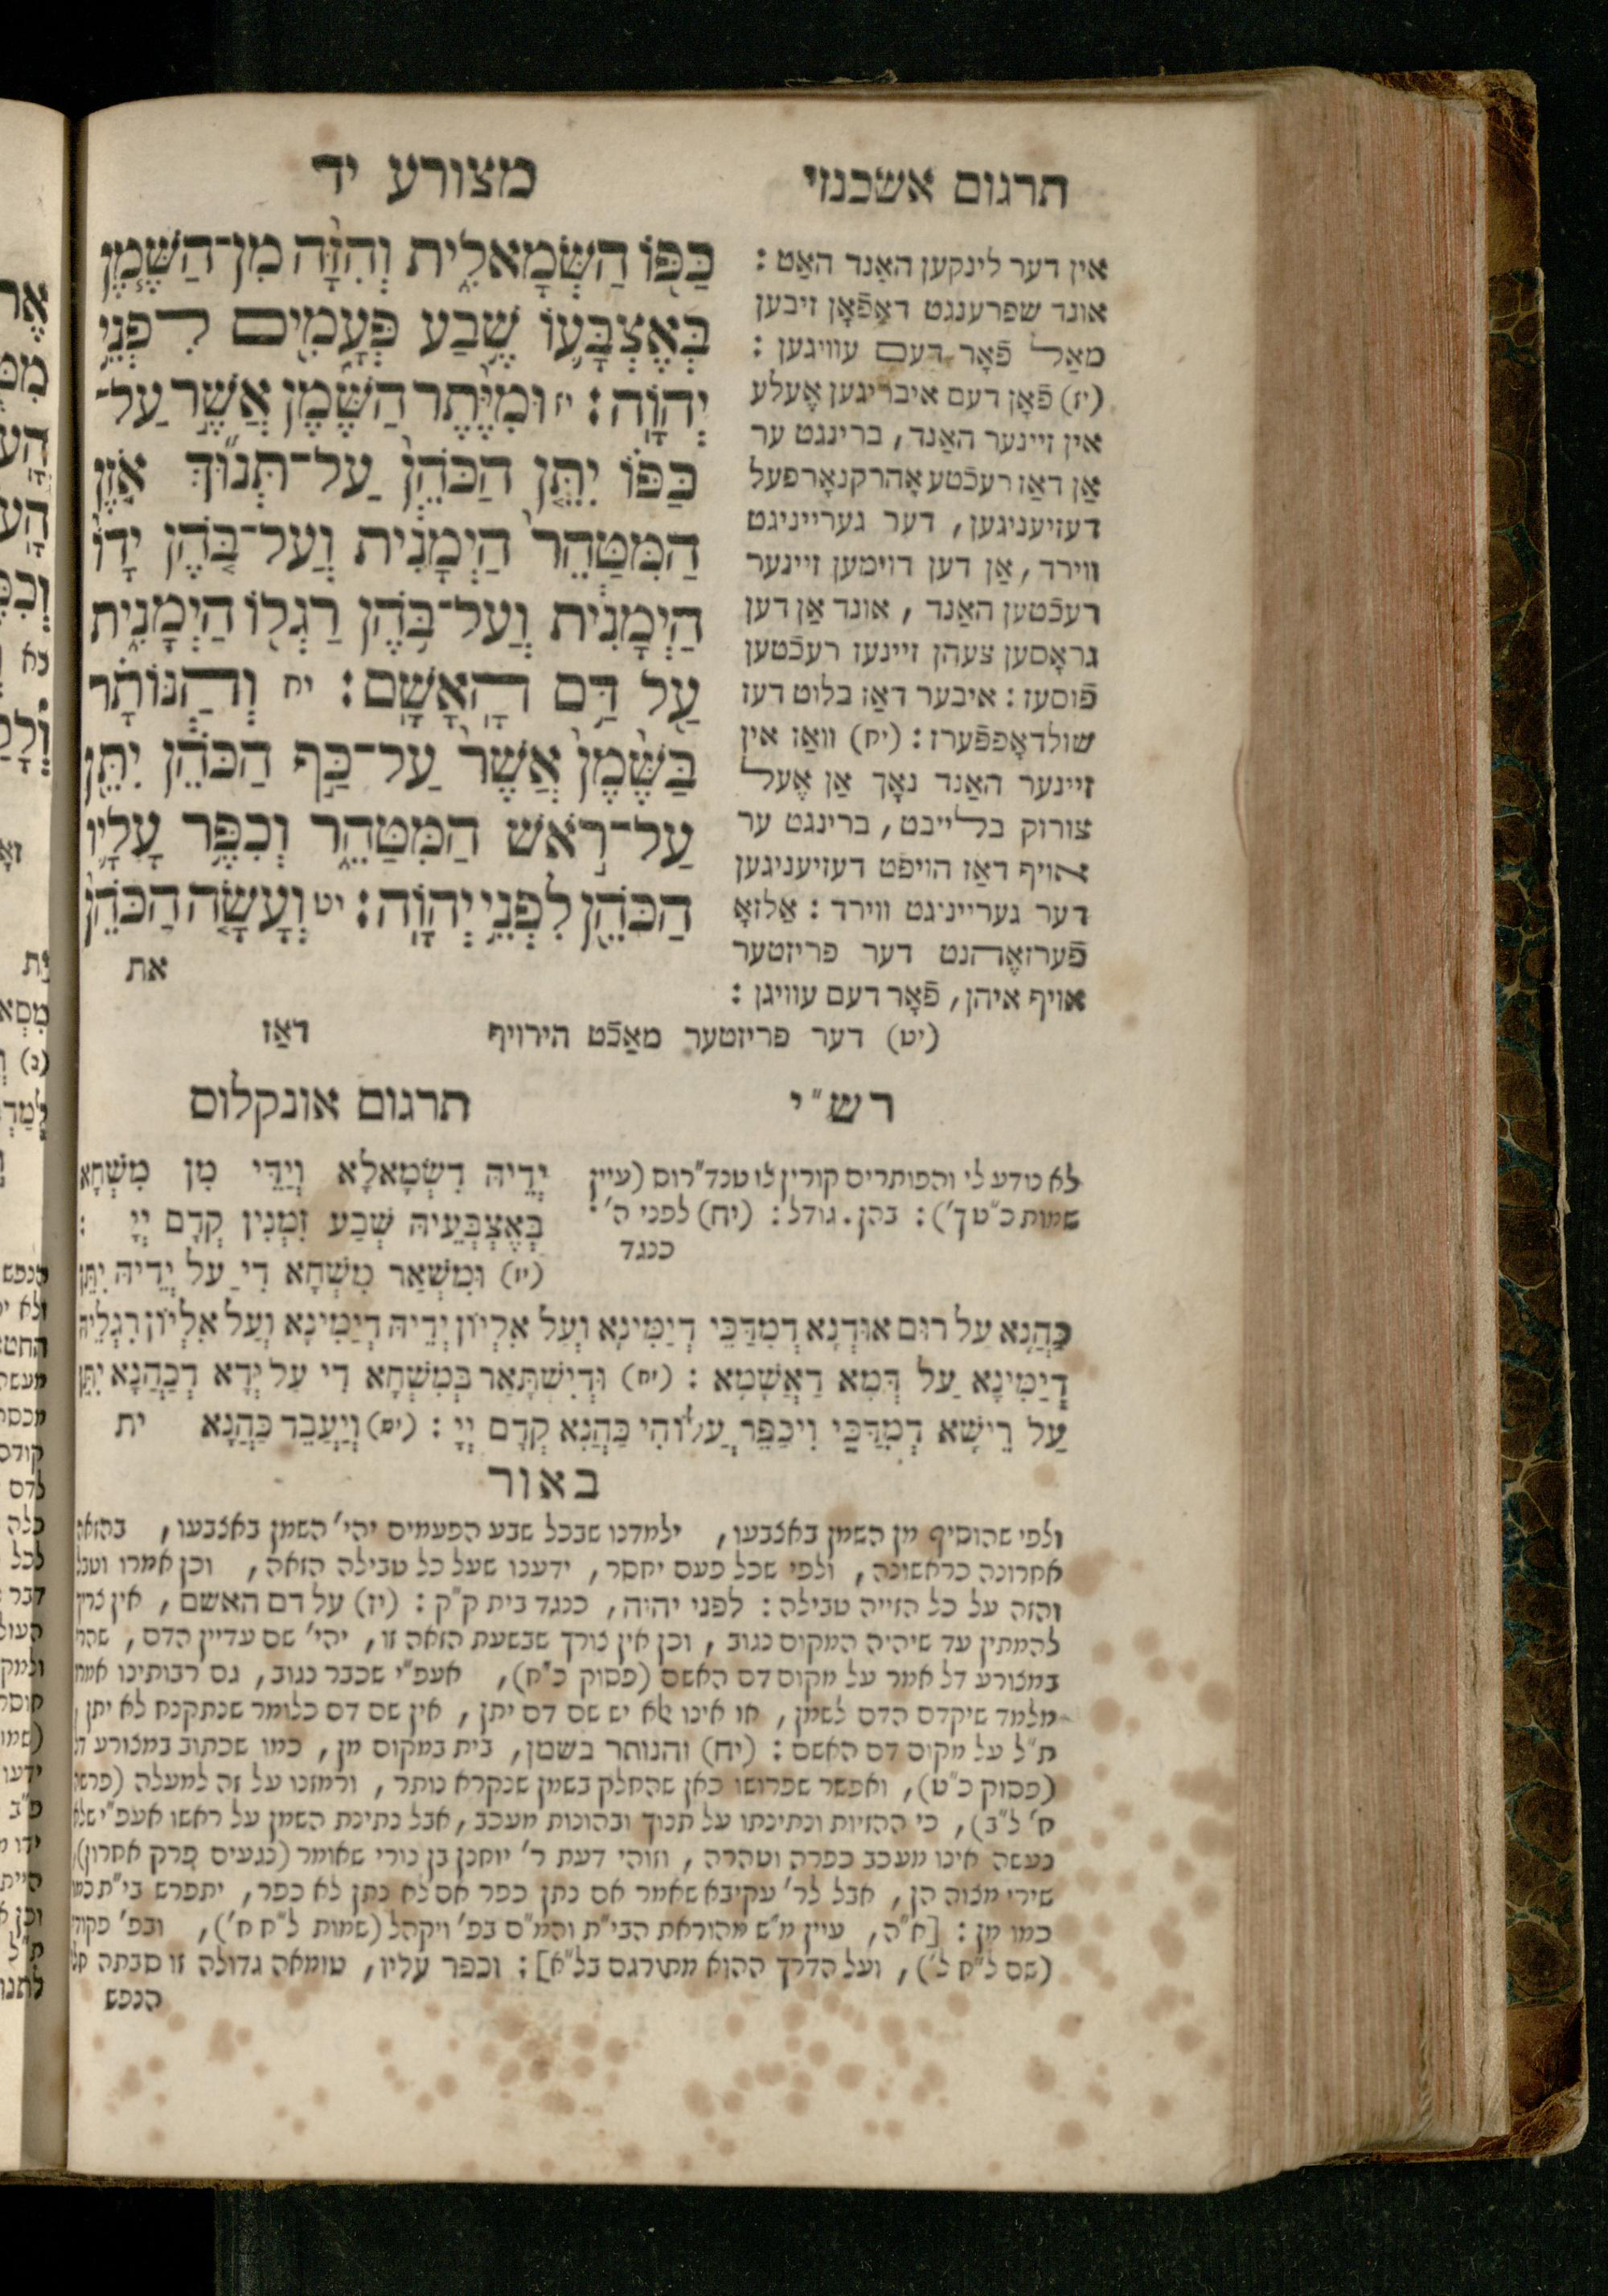 מצורע יד
כַּפּ֖וֹ הַשְּׂמָאלִ֑ית וְהִזָּ֨ה מִן־הַשֶּׁ֧מֶן
בְּאֶצְבָּע֛וֹ שֶׁ֥בַע פְּעָמִ֖ים לִפְנֵ֥י
יְהוָֽה׃ יז וּמִיֶּ֨תֶר הַשֶּׁ֜מֶן אֲשֶׁ֣ר עַל־
כַּפּ֗וֹ יִתֵּ֤ן הַכֹּהֵן֙ עַל־תְּנ֞וּךְ אֹ֤זֶן
הַמִּטַּהֵר֙ הַיְמָנִ֔ית וְעַל־בֹּ֤הֶן יָדוֹ֙
הַיְמָנִ֔ית וְעַל־בֹּ֥הֶן רַגְל֖וֹ הַיְמָנִ֑ית
עַ֖ל דַּ֥ם הָאָשָֽׁם׃ יח וְהַנּוֹתָ֗ר
בַּשֶּׁ֙מֶן֙ אֲשֶׁר֙ עַל־כַּ֣ף הַכֹּהֵ֔ן יִתֵּ֖ן
עַל־רֹ֣אשׁ הַמִּטַּהֵ֑ר וְכִפֶּ֥ר עָלָ֛יו
הַכֹּהֵ֖ן לִפְנֵ֥י יְהוָֽה׃ יט וְעָשָׂ֤ה הַכֹּהֵן֙
את
תרגום אשכנזי
אין דער לינקען האַנד האַט :
אונד שפרענגט דאַפֿאָן זיבען
מאַל פֿאָר דעם עוויגען :
(יז) פֿאָן דעם איבריגען אֶעלע
אין זיינער האַנד, ברינגט ער
אַן דאַז רעכֿטע אָהרקנאָרפעל
דעזיעניגען, דער געריייניגט
ווירד, אַן דען דוימען זיינער
רעכֿטען האַנד, אונד אַן דען
גראָסען צעהן זיינעז רעכֿטען
פֿוסעז : איבער דאַז בלוט דעז
שולדאָפפֿערז : (יח) וואַז אין
זיינער האַנד נאָך אַן אֶעל
צורוק בלייבט, ברינגט ער
אויף דאַז הויפט דעזיעניגען
דער געריייניגט ווירד : אַלזאָ
פֿערזאֶהנט דער פריזטער
אויף איהן, פֿאָר דעם עוויגן :
(יט) דער פריזטער מאַכֿט הירויף דאַז
רש״י
לא נודע לי והפותרים קורין לו טנד״רום (עיין
שמות כ״ט ך׳) : בהן. גודל : (יח) לפני ה׳.
כנגד
תרגום אונקלוס
יְדֵיהּ דִשְׂמָאלָא וְיַדֵּי מִן מִשְׁחָא
בְּאֶצְבְּעֵיהּ שְׁבַע זִמְנִין קֳדָם יְיָ :
(יז) וּמִשְּׁאַר מִשְׁחָא דִי עַל יְדֵיהּ יִתֵּן
כַּהֲנָא עַל רוּם אוּדְנָא דְמִדַּכֵּי דְיַמִּינָא וְעַל אִלְיוֹן יְדֵיהּ דְיַמִּינָא וְעַל אִלְיוֹן רִגְלֵיהּ
דְיַמִּינָא עַל דְּמָא דַאֲשָׁמָא : (יח) וּדְיִשְׁתָּאַר בְּמִשְׁחָא דִי עַל יְדָא דְכַהֲנָא יִתֵּן
עַל רֵישָׁא דְמִדַּכֵּי וִיכַפֵּר עֲלוֹהִי כַּהֲנָא קֳדָם יְיָ : (יט) וְיַעֲבֵד כַּהֲנָא ית
באור
ולפי שהוסיף מן השמן באצבעו, ילמדנו שבכל שבע הפעמים יהי׳ השמן באצבעו, בהזאה
אחרונה כראשונה, ולפי שכל פעם יחסר, ידענו שעל כל טבילה הזאה, וכן אמרו וטבל
והזה על כל הזייה טבילה : לפני יהוה, כנגד בית ק״ק : (יז) על דם האשם, אין צריך
להמתין עד שיהיה המקום נגוב, וכן אין צורך שבשעת הזאה זו, יהי׳ שם עדיין הדם, שהרי
במצורע דל אמר על מקום דם האשם (פסוק כ״ח), אעפ״י שכבר נגוב, גם רבותינו אמרו
מלמד שיקדם הדם לשמן, או אינו אלא יש שם דם יתן, אין שם דם כלומר שנתקנח לא יתן,
ת״ל על מקום דם האשם : (יח) והנותר בשמן, בית במקום מן, כמו שכתוב במצורע דל
(פסוק כ״ט), ואפשר שפרושו כאן שהחלק בשמן שנקרא נותר, ורמזנו על זה למעלה (פרשה
ח׳ ל״ב), כי ההזיות ונתינתו על תנוך ובהונות מעכב, אבל נתינת השמן על ראשו אעפ״י שלא
נעשה אינו מעכב כפרה וטהרה, וזוהי דעת ר׳ יוחנן בן נורי שאומר (נגעים פרק אחרון)
שירי מצוה הן, אבל לר׳ עקיבא שאמר אם נתן כפר אם לא נתן לא כפר, יתפרש בי״ת כמו
כמו מן : [א״ה, עיין מ״ש מהוראת הבי״ת והמ״ם בפ׳ ויקהל (שמות ל״ח ח׳), ובפ׳ פקודי
(שם ל״ח ל׳), ועל הדרך ההוא מתורגם בל״א] : וכפר עליו, טומאה גדולה זו סבתה חלי
הנפש